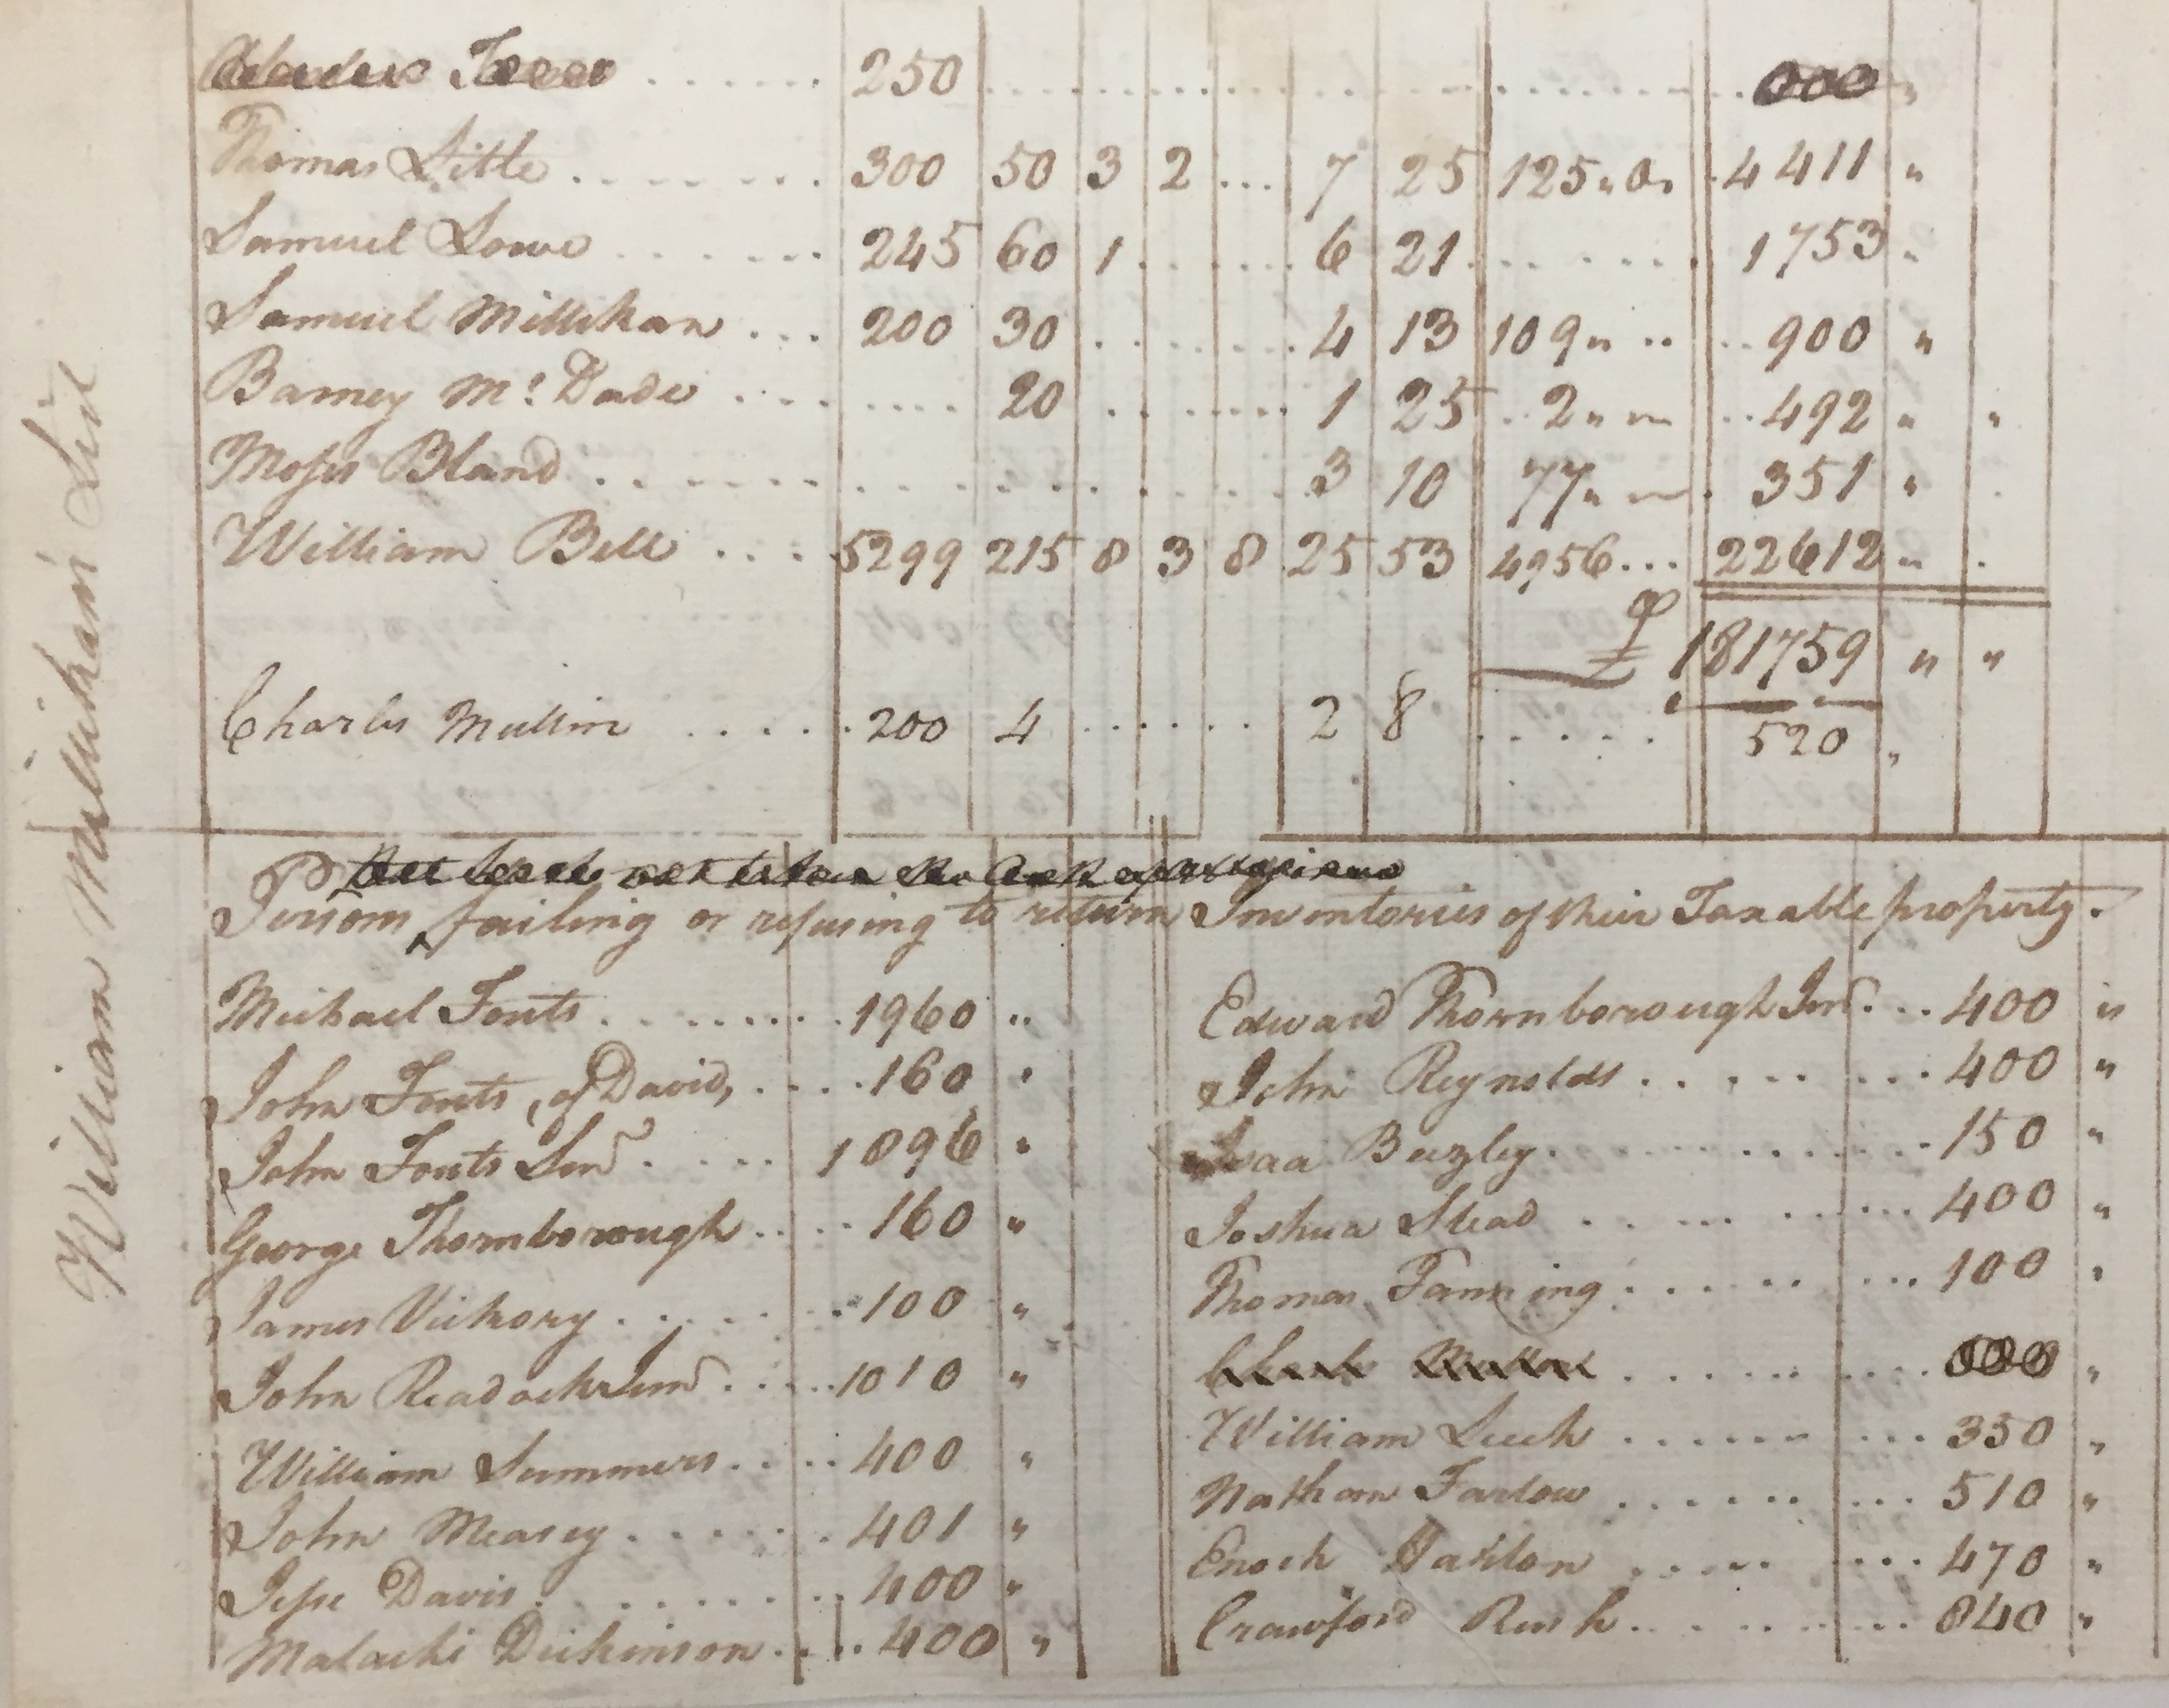 250
Thomas Little 300 50 3 2 7 25 125 " 0 " 4411 "
Samuel Lowe 245 60 1 6 21 1753 "
Samuel Millikan 200 30 4 13 109 " 900 "
Barney Mc. Dade 20 1 25 2 " 492 " "
Moses Bland 3 10 77 " 351 "
William Bell 5299 215 8 3 8 25 53 4956 22612 "
£ 181759 " "
Charles Mullin 200 4 2 8 520 "
William Millikan's List
Persons failing or refusing to return Inventories of their Taxable property.
Michael Fouts 1960 "
John Fouts, of David, 160 "
John Fouts Senr 1896 "
George Thornborough 160 "
James Vickory 100 "
John 1010 "
William Summers 400 "
John Measey 401 "
Jesse Davis 400 "
Malachi Dickinson 400 "
Edward Thornborough Junr. 400 "
John Reynolds 400 "
Beezley 150 "
Joshua Stead 400 "
Thomas Fanning 100 "
William Leech 350 "
Nathan Farlow 510 "
Enoch 470 "
Crawford Rush 840 "